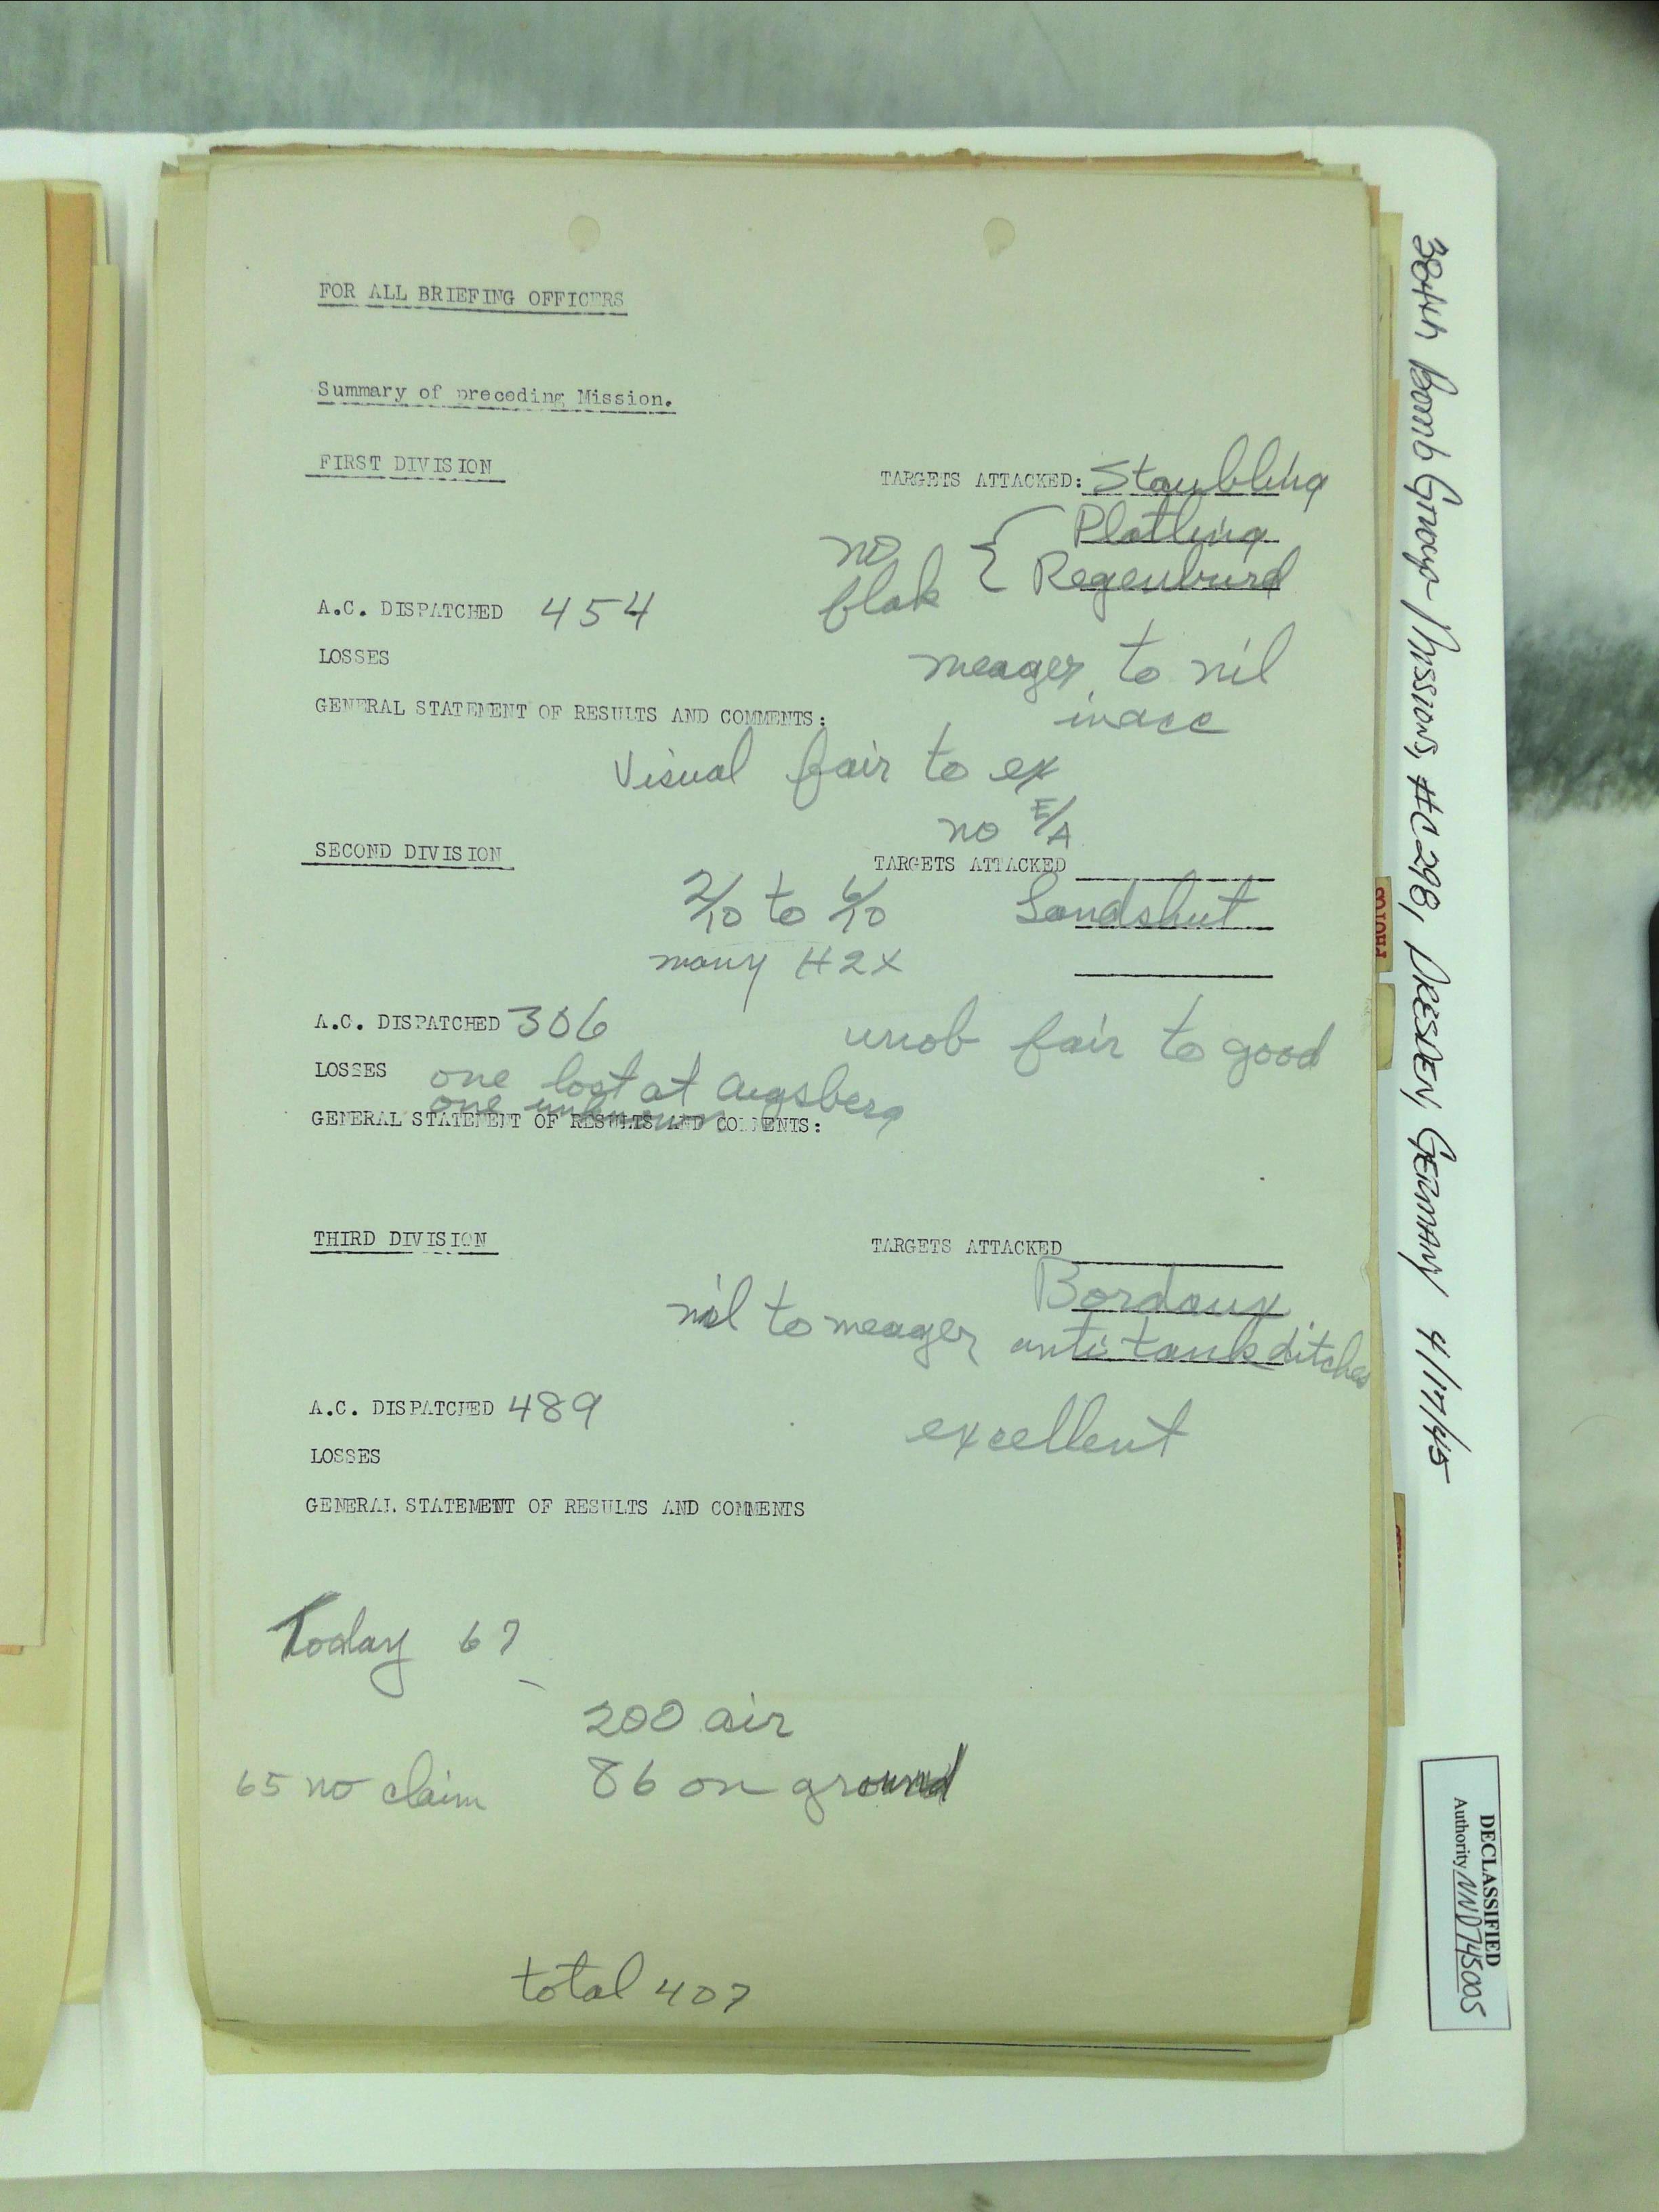 FOR ALL BRIEFING OFFICERS
Summary of preceding Mission.
FIRST DIVISION
TARGETS ATTACKED: Staubling
Platling
no flak { Regenburd
A.C. DISPATCHED 454
LOSSES
meager to nil
inacc
GENERAL STATEMENT OF RESULTS AND COMMENTS:
Visual fair to ex
no E/A
SECOND DIVISION
TARGETS ATTACKED
2/10 to 6/10
Landshut
many H2X
A.C. DISPATCHED 306
unob fair to good
LOSSES one lost at Augsberg
one unknown
GENERAL STATEMENT OF RESULTS AND COMMENTS:
THIRD DIVISION
TARGETS ATTACKED
Bordaux
nil to meager anti tank ditches
A.C. DISPATCHED 489
excellent
LOSSES
GENERAL STATEMENT OF RESULTS AND COMMENTS
Today 67
200 air
65 no claim 86 on ground
total 407
384th Bomb Group - Missions, #C298, DRESDEN, GERMANY 4/17/45
PHOTOS
DECLASSIFIED
Authority NND745005